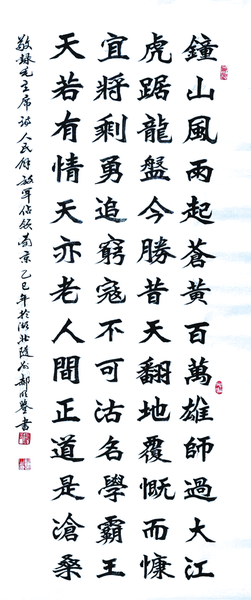 鐘山風雨起蒼黃百萬雄師過大江
虎踞龍盤今勝昔天翻地覆慨而慷
宜將剩勇追窮寇不可沽名學霸王
天若有情天亦老人間正道是滄桑
敬錄毛主席詩人民解放軍佔領南京乙巳年於湖北隨州郝明鑒書